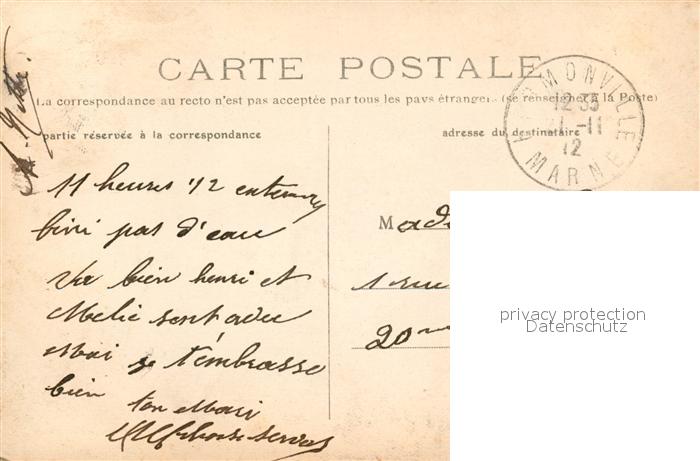 CARTE POSTALE
La correspondance au recto n'est pas acceptée par tous les pays étrangers (se renseigner à la Poste)
partie réservée à la correspondance
adresse du destinataire
HERMONVILLE
12 35
-11
12
MARNE
11 heures 1/2
fini pas d'eau
va bien henri et
Melie sont avec
Moi je t'embrasse
bien ton Mari
Mad
1 rue
20me
privacy protection
Datenschutz